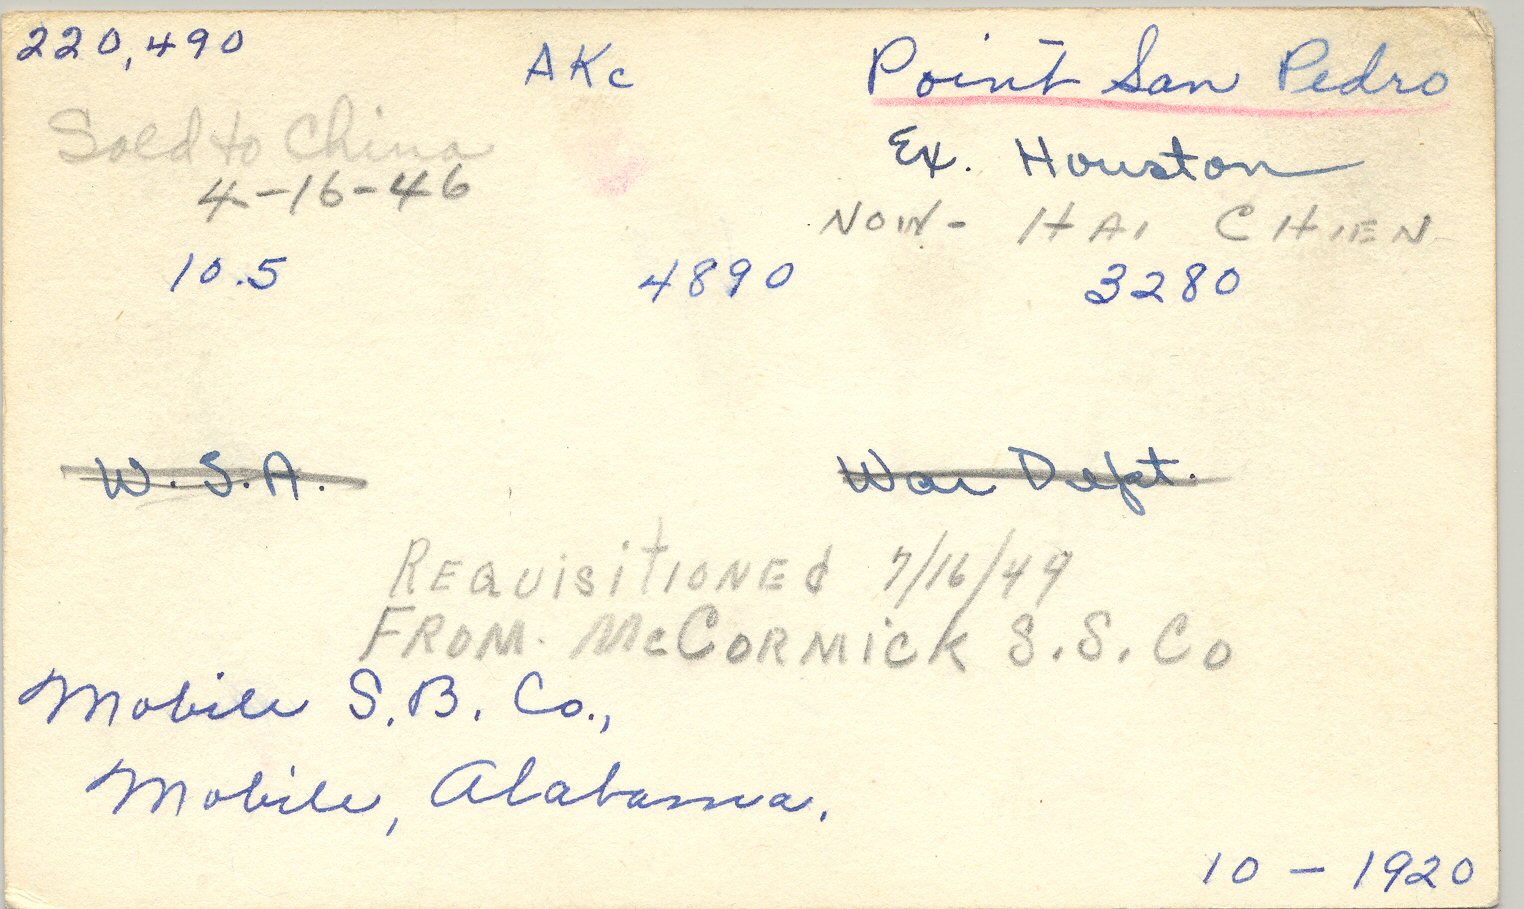 220,490
AKc
Point San Pedro
Sold to China
Ex. Houston
4-16-46
NOW - HAI CHIEN
10.5 4890 3280
W.S.A. War Dept.
REQUISITIONED 7/16/49
FROM McCORMICK S.S. Co
Mobile S.B. Co.,
Mobile, Alabama.
10 - 1920